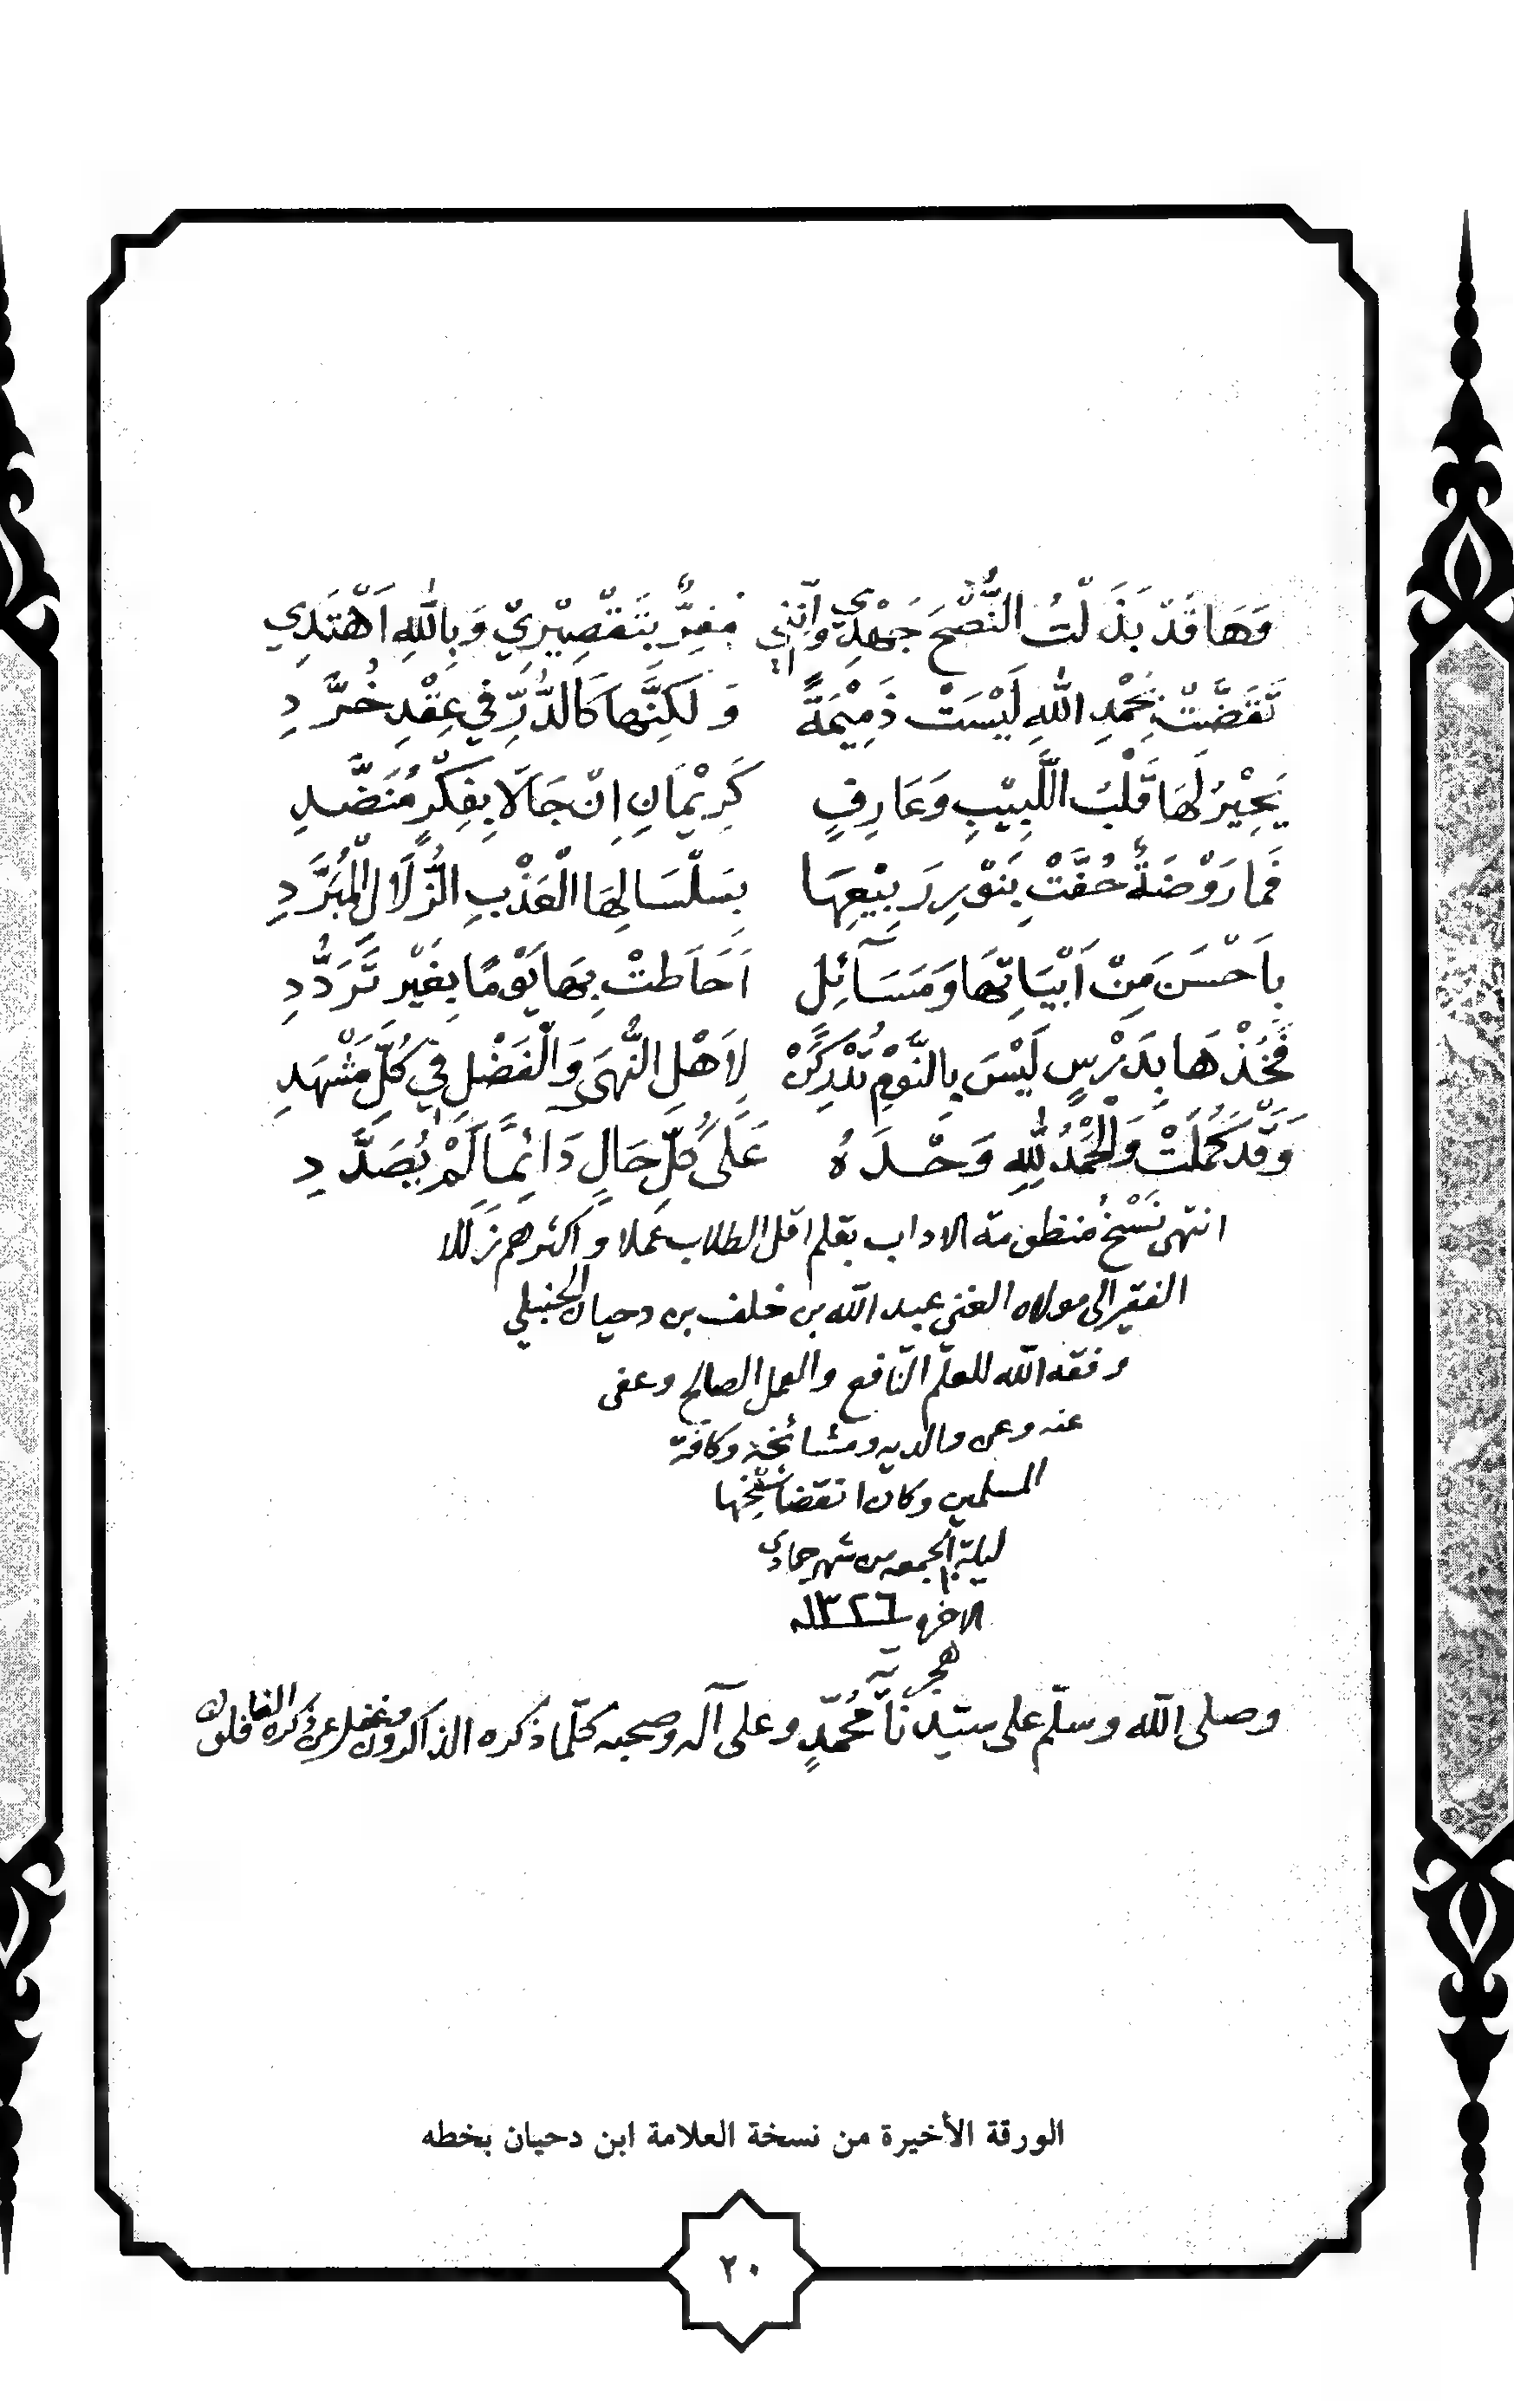 وَهَا قَدْ بَذَلْتُ النُّصْحَ جَهْدِي وَإِنَّنِي مُقِرٌّ بِتَقْصِيْرِيْ وَبِاللهِ اَهْتَدِي
تَقَضَّتْ بِحَمْدِ اللهِ لَيْسَتْ ذَمِيْمَةً وَلَكِنَّهَا كَالدُّرِّ فِي عِقْدِ خُرَّدِ
يَحِيْرُ لَهَا قَلْبُ اللَّبِيْبِ وَعَارِفٍ كَرِيْمَانِ اِنْ جَالَا بِفِكْرٍ مُنَضَّدِ
فَمَا رَوْضَةٌ حُفَّتْ بِنَوْرِ رَبِيْعِهَا بِسَلْسَالِهَا الْعَذْبِ الزُّلَالِ الْمُبَرَّدِ
بِاَحْسَنَ مِنْ اَبْيَاتِهَا وَمَسَآئِل اَحَاطَتْ بِهَا يَوْمًا بِغَيْرِ تَرَدُّدِ
فَخُذْهَا بِدَرْسٍ لَيْسَ بِالنَّوْمِ تُدْرِكَنْ لِاَهْلِ النُّهَى وَالْفَضْلِ فِي كُلِّ مَشْهَدِ
وَقَدْ كَمُلَتْ وَالْحَمْدُ لِلهِ وَحْدَهُ عَلَى كُلِّ حَالٍ دَائِمًا لَمْ يُصَدَّدِ
انتهى نَسْخُ منظومة الاداب بقلم اقل الطلاب عملا و اكثرهم زللا
الفقير الى مولاه الغني عبد الله بن خلف بن دحيان الحنبلي
وفقه الله للعلم النّافع والعمل الصالح وعفى
عنه وعن والديه ومشائخه وكافة
المسلمين وكان انقضا نسخها
ليلة الجمعه من شهر جمادى
الاخره ١٣٢٦
هجر
وصلى الله وسلّم على سيّدنا مُحمّدٍ وعلى آله وصحبه كلّما ذكره الذاكرون وغفل عن ذكره الغافلون
الورقة الأخيرة من نسخة العلامة ابن دحيان بخطه
٢٠